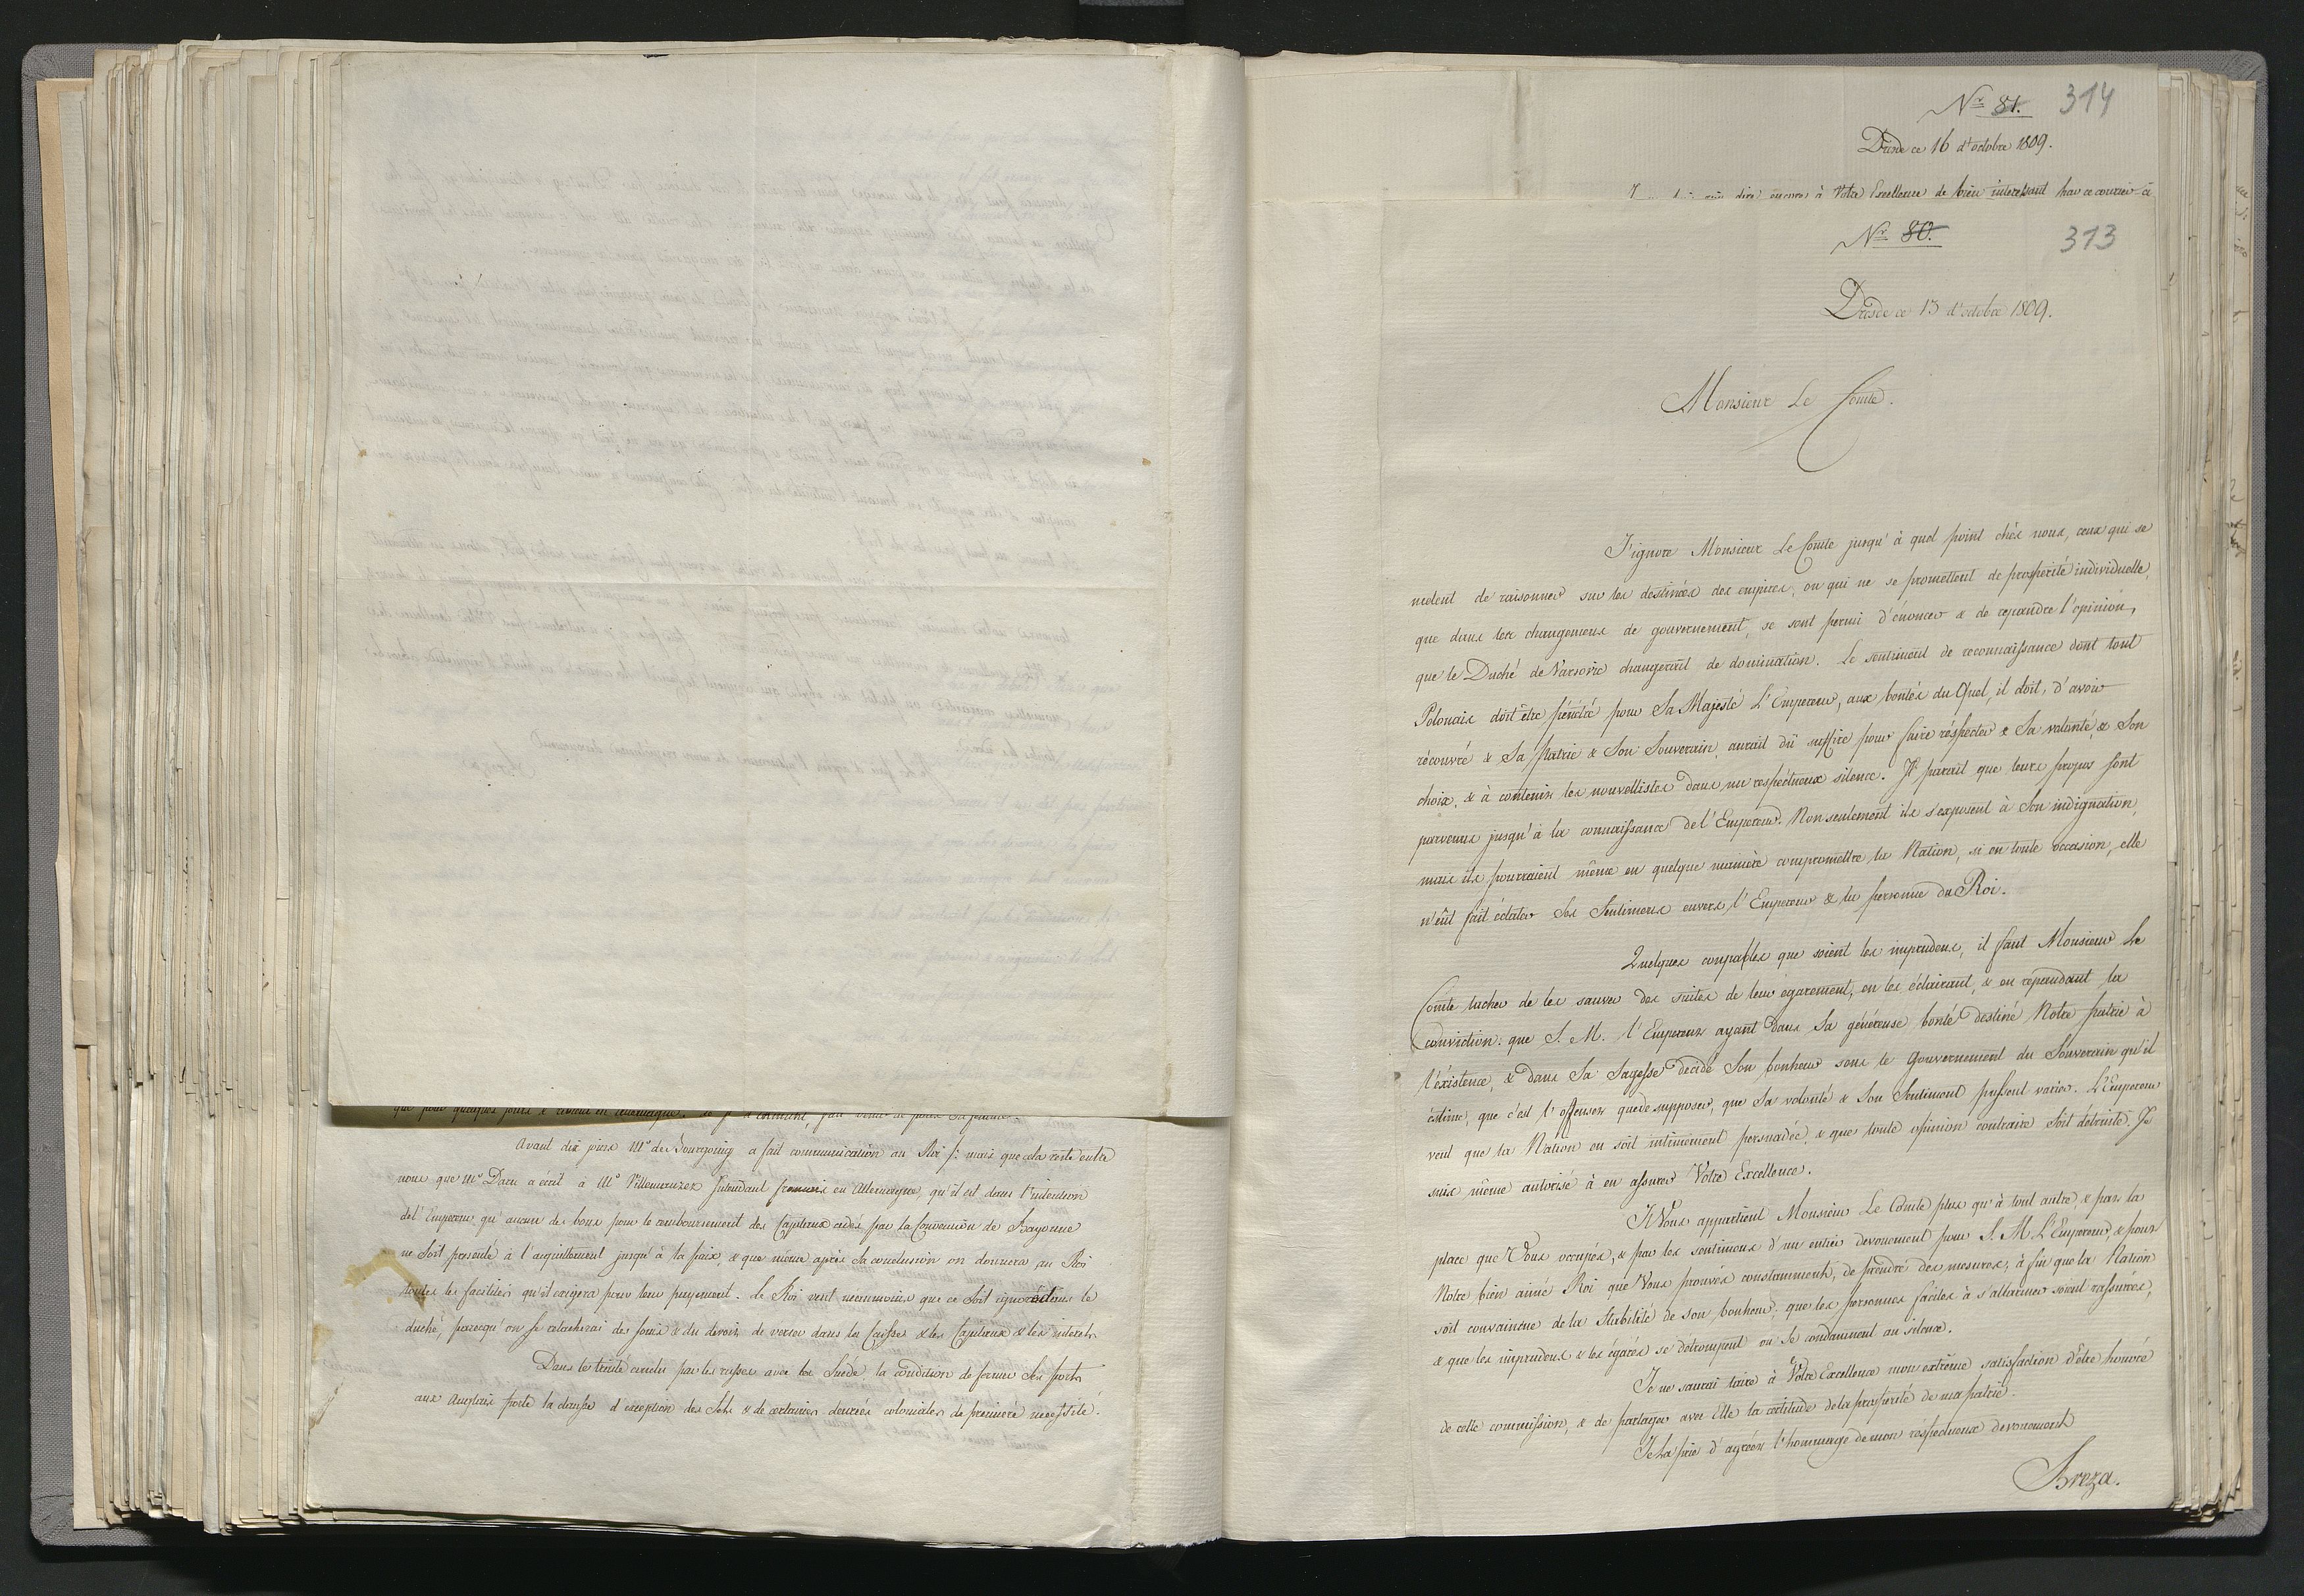 que pour quelques jours &
Avant dix jours Mr de Bourgoing a fait communication au Roi /: mais que cela reste entre
nous que Mr Daru a écrit à Mr Villemanzex Intendant français en Allemagne, qu'il est dans l'intention
de l'Empereur qu'aucun des bons pour le remboursement des Capitaux cedés par la Convension de Bayonne
ne soit presenté à l'aquittement jusqu'à la paix, & que même après sa conclusion on donnera au Roi
toutes les facilités qu'il exigera pour leur payement. Le Roi veut neanmoins que ce soit ignoré dans le
duché, parcequ'on se relacherai des soins & du devoir de verser dans la Caisse & les Capitaux & les interets
Dans le traité conclu par les russes avec la Suede la condition de fermer ses ports
aux Anglais porte la clause d'exeption des Sels & de certaines denrées coloniales de premiere necessité.
Nr 81. 314
Dresde ce 16 d'octobre 1809.
dire encore à Votre Excellence de bien interessant par ce courrier ci
Nr 80. 313
Dresde ce 13 d'octobre 1809.
Monsieur Le Comte.
J'ignore Monsieur Le Comte jusqu'à quel point chés nous, ceux qui se
melent de raisonner sur les destinées des empires, ou qui ne se promettent de prospérité individuelle,
que dans les changemens de gouvernement, se sont permi d'énoncer & de repandre l'opinion,
que le Duché de Varsovie changerait de domination. Le sentiment de reconnaissance dont tout
Polonais doit être pénétré pour Sa Majesté L'Empereur, aux bontés du Quel, il doit, d'avoir
récouvré & Sa Patrie & Son Souverain, aurait dû suffire pour faire réspecter & Sa volonté & Son
choix, & à contenir les nouvellistes dans un respéctueux silence. Il parait que leurs propos sont
parvenus jusqu'à la connaissance de l'Empereur. Non seulement ils s'exposent à Son indignation,
mais ils pourraient même en quelque manière compromettre la Nation, si en toute occasion, elle
n'eût fait éclater Ses Sentimens envers l'Empereur & la personne du Roi.
Quelques coupables que soient les imprudens, il faut Monsieur Le
Comte tacher de les sauver des suites de leur égarement, en les éclairant, & en repandant la
conviction: que S. M. l'Empereur ayant dans Sa généreuse bonté destiné Notre patrie à
l'éxistence, & dans Sa Sagesse decidé Son bonheur sous le Gouvernement du Souverain qu'il
estime, que c'est l'offenser que de supposer, que Sa volonté & Son Sentiment puissent varier. L'Empereur
veut que la Nation en soit intimement persuadée, & que toute opinion contraire soit détruite. Je
suis même autorisé à en assurer Votre Excellence.
Il Vous appartient Monsieur Le Comte plus qu'à tout autre, & par la
place que Vous occupés, & par les sentimens d'un entier devouement pour S. M. L'Empereur, & pour
Notre bien aimé Roi que Vous prouvés constamment, de prendre des mesures, à fin que la Nation
soit convaincue de la Stabilité de son bonheur, que les personnes faciles à s'allarmer soient rassurées,
& que les imprudens & les égarés se detrompent ou Se condamnent au silence.
Je ne saurai taire à Votre Excellence mon extrême satisfaction d'être honoré
de cette commission, & de partager avec Elle la certitude de la prosperité de ma patrie.
Je La prie d'agréer l'hommage de mon réspectueux devouement
Breza.